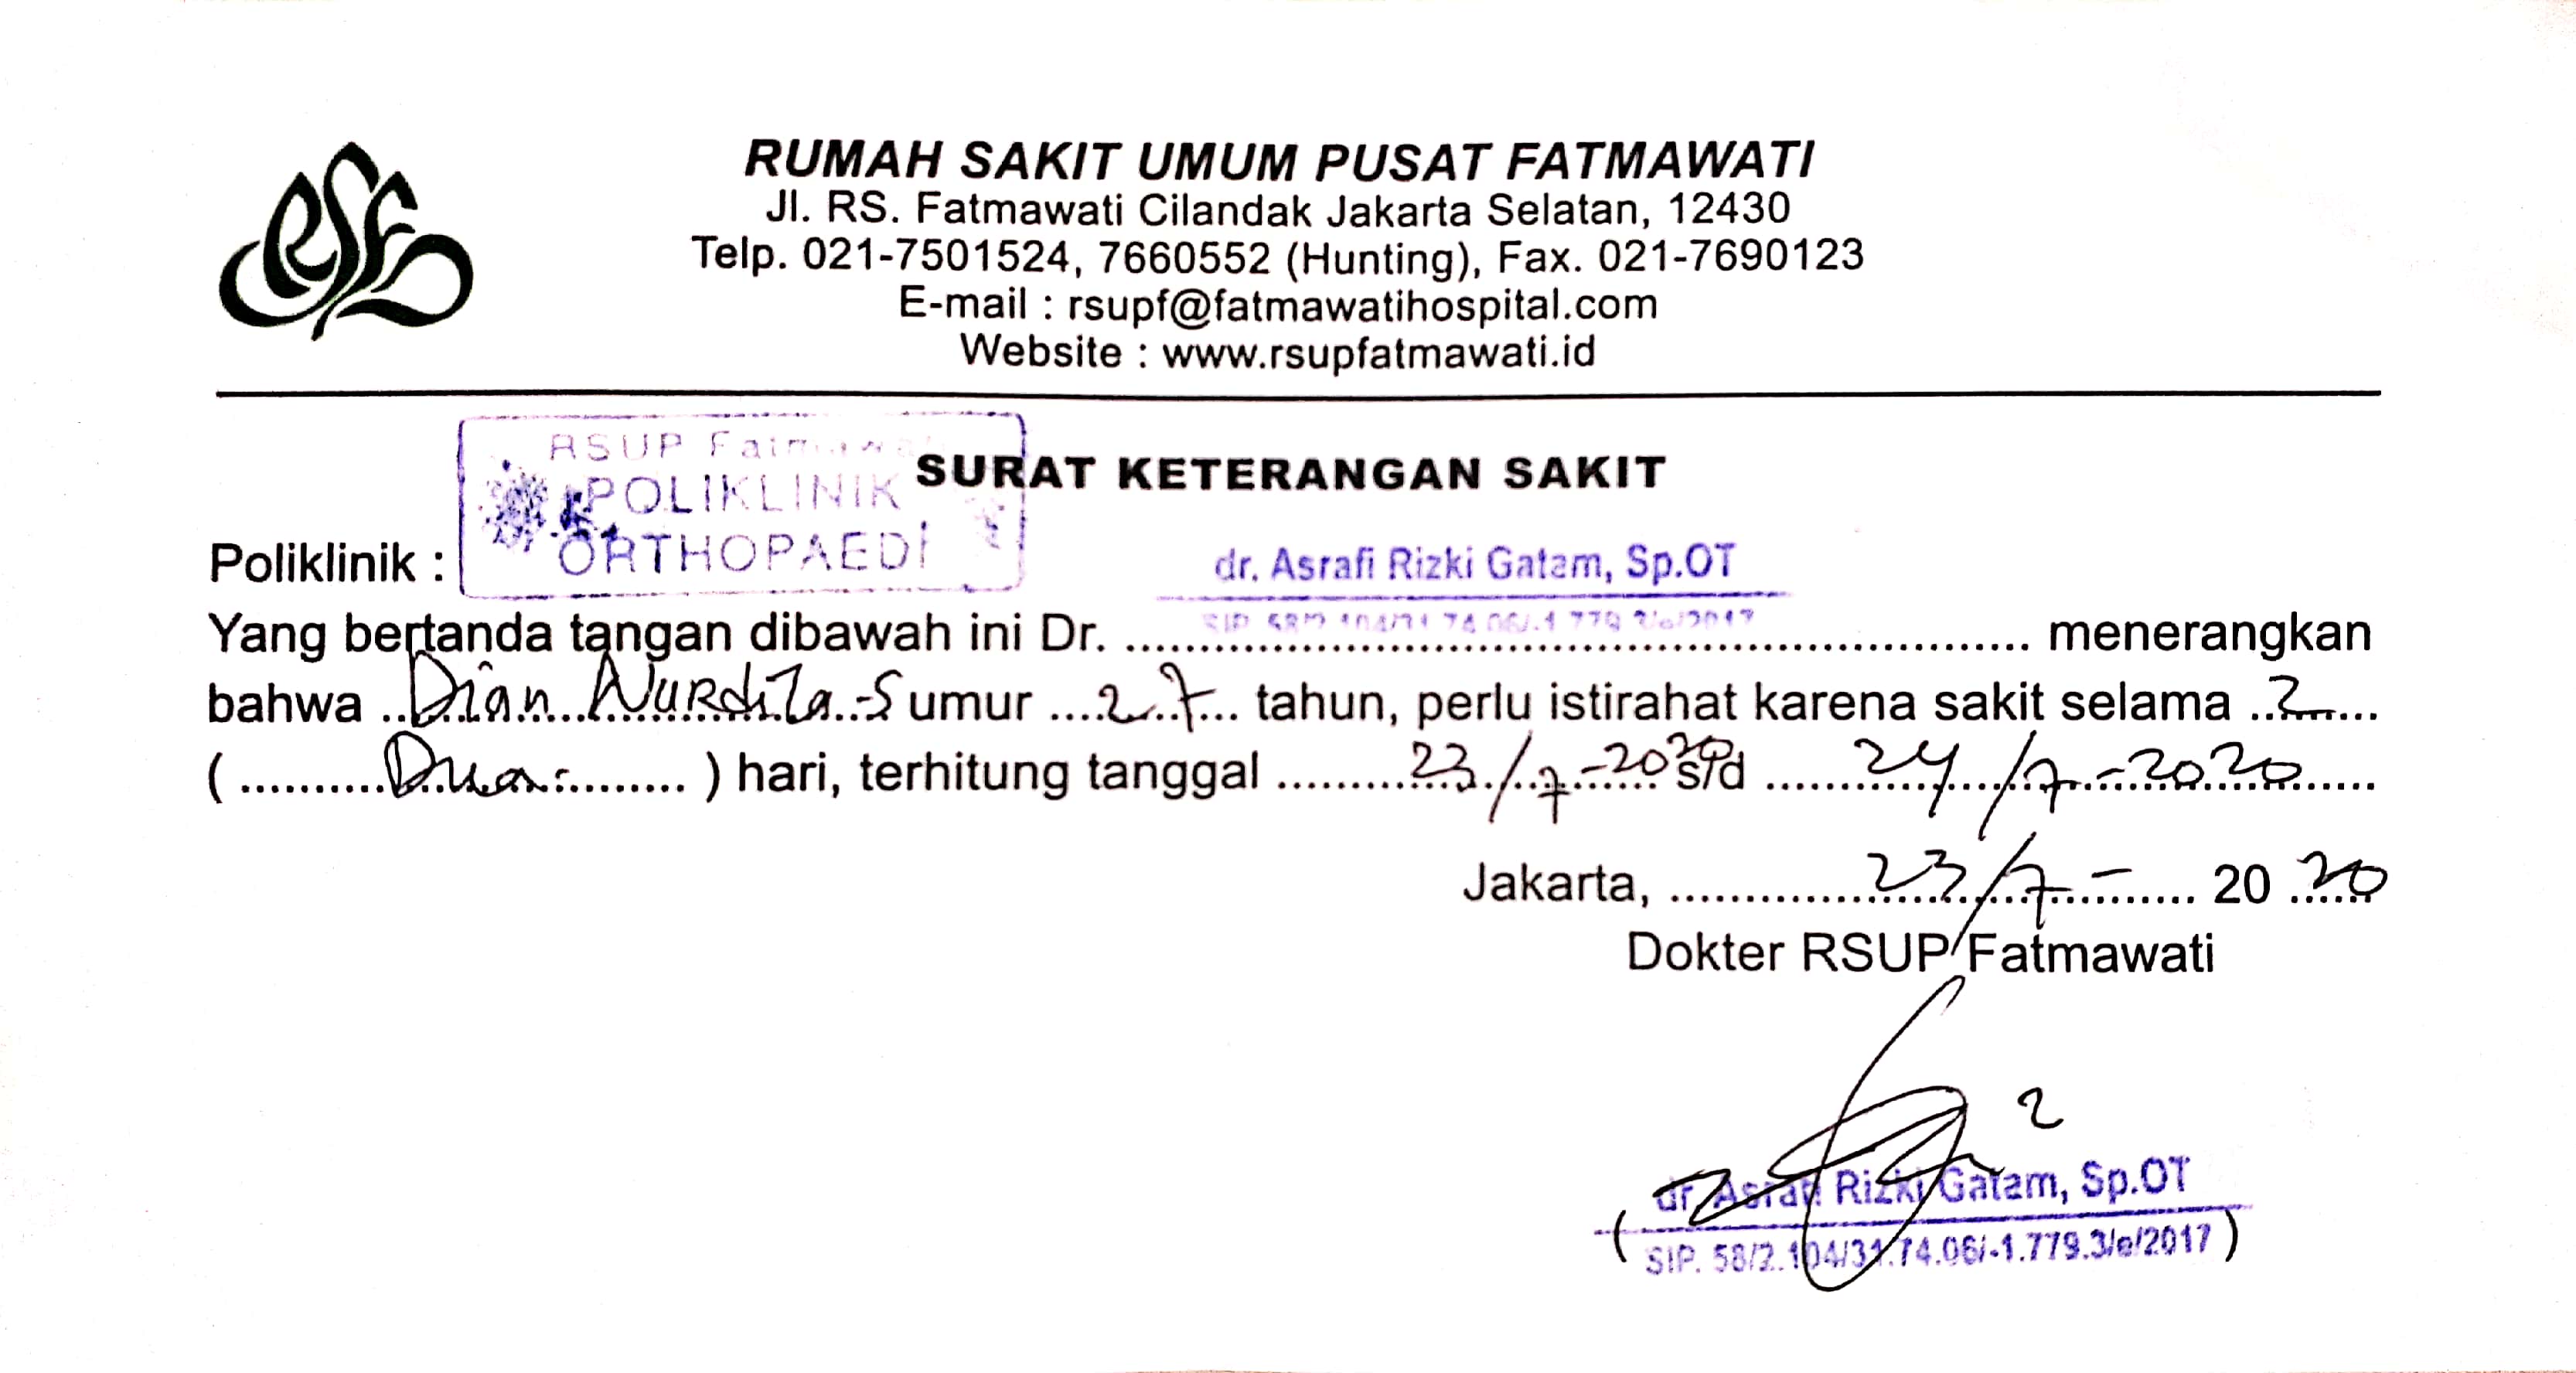 RSF
RUMAH SAKIT UMUM PUSAT FATMAWATI
Jl. RS. Fatmawati Cilandak Jakarta Selatan, 12430
Telp. 021-7501524, 7660552 (Hunting), Fax. 021-7690123
E-mail : rsupf@fatmawatihospital.com
Website : www.rsupfatmawati.id
RSUP Fatmawati
POLIKLINIK
ORTHOPAEDI
SURAT KETERANGAN SAKIT
Poliklinik :
dr. Asrafi Rizki Gatam, Sp.OT
SIP. 58/2.104/31.74.06/-1.779.3/e/2017
Yang bertanda tangan dibawah ini Dr. .......... menerangkan
bahwa Dian Nurdiza-S umur 27 tahun, perlu istirahat karena sakit selama 2
( Dua ) hari, terhitung tanggal 23/7-2020 s/d 24/7-2020
Jakarta, 23/7- 20 20
Dokter RSUP Fatmawati
2
dr. Asrafi Rizki Gatam, Sp.OT
( SIP. 58/2.104/31.74.06/-1.779.3/e/2017 )